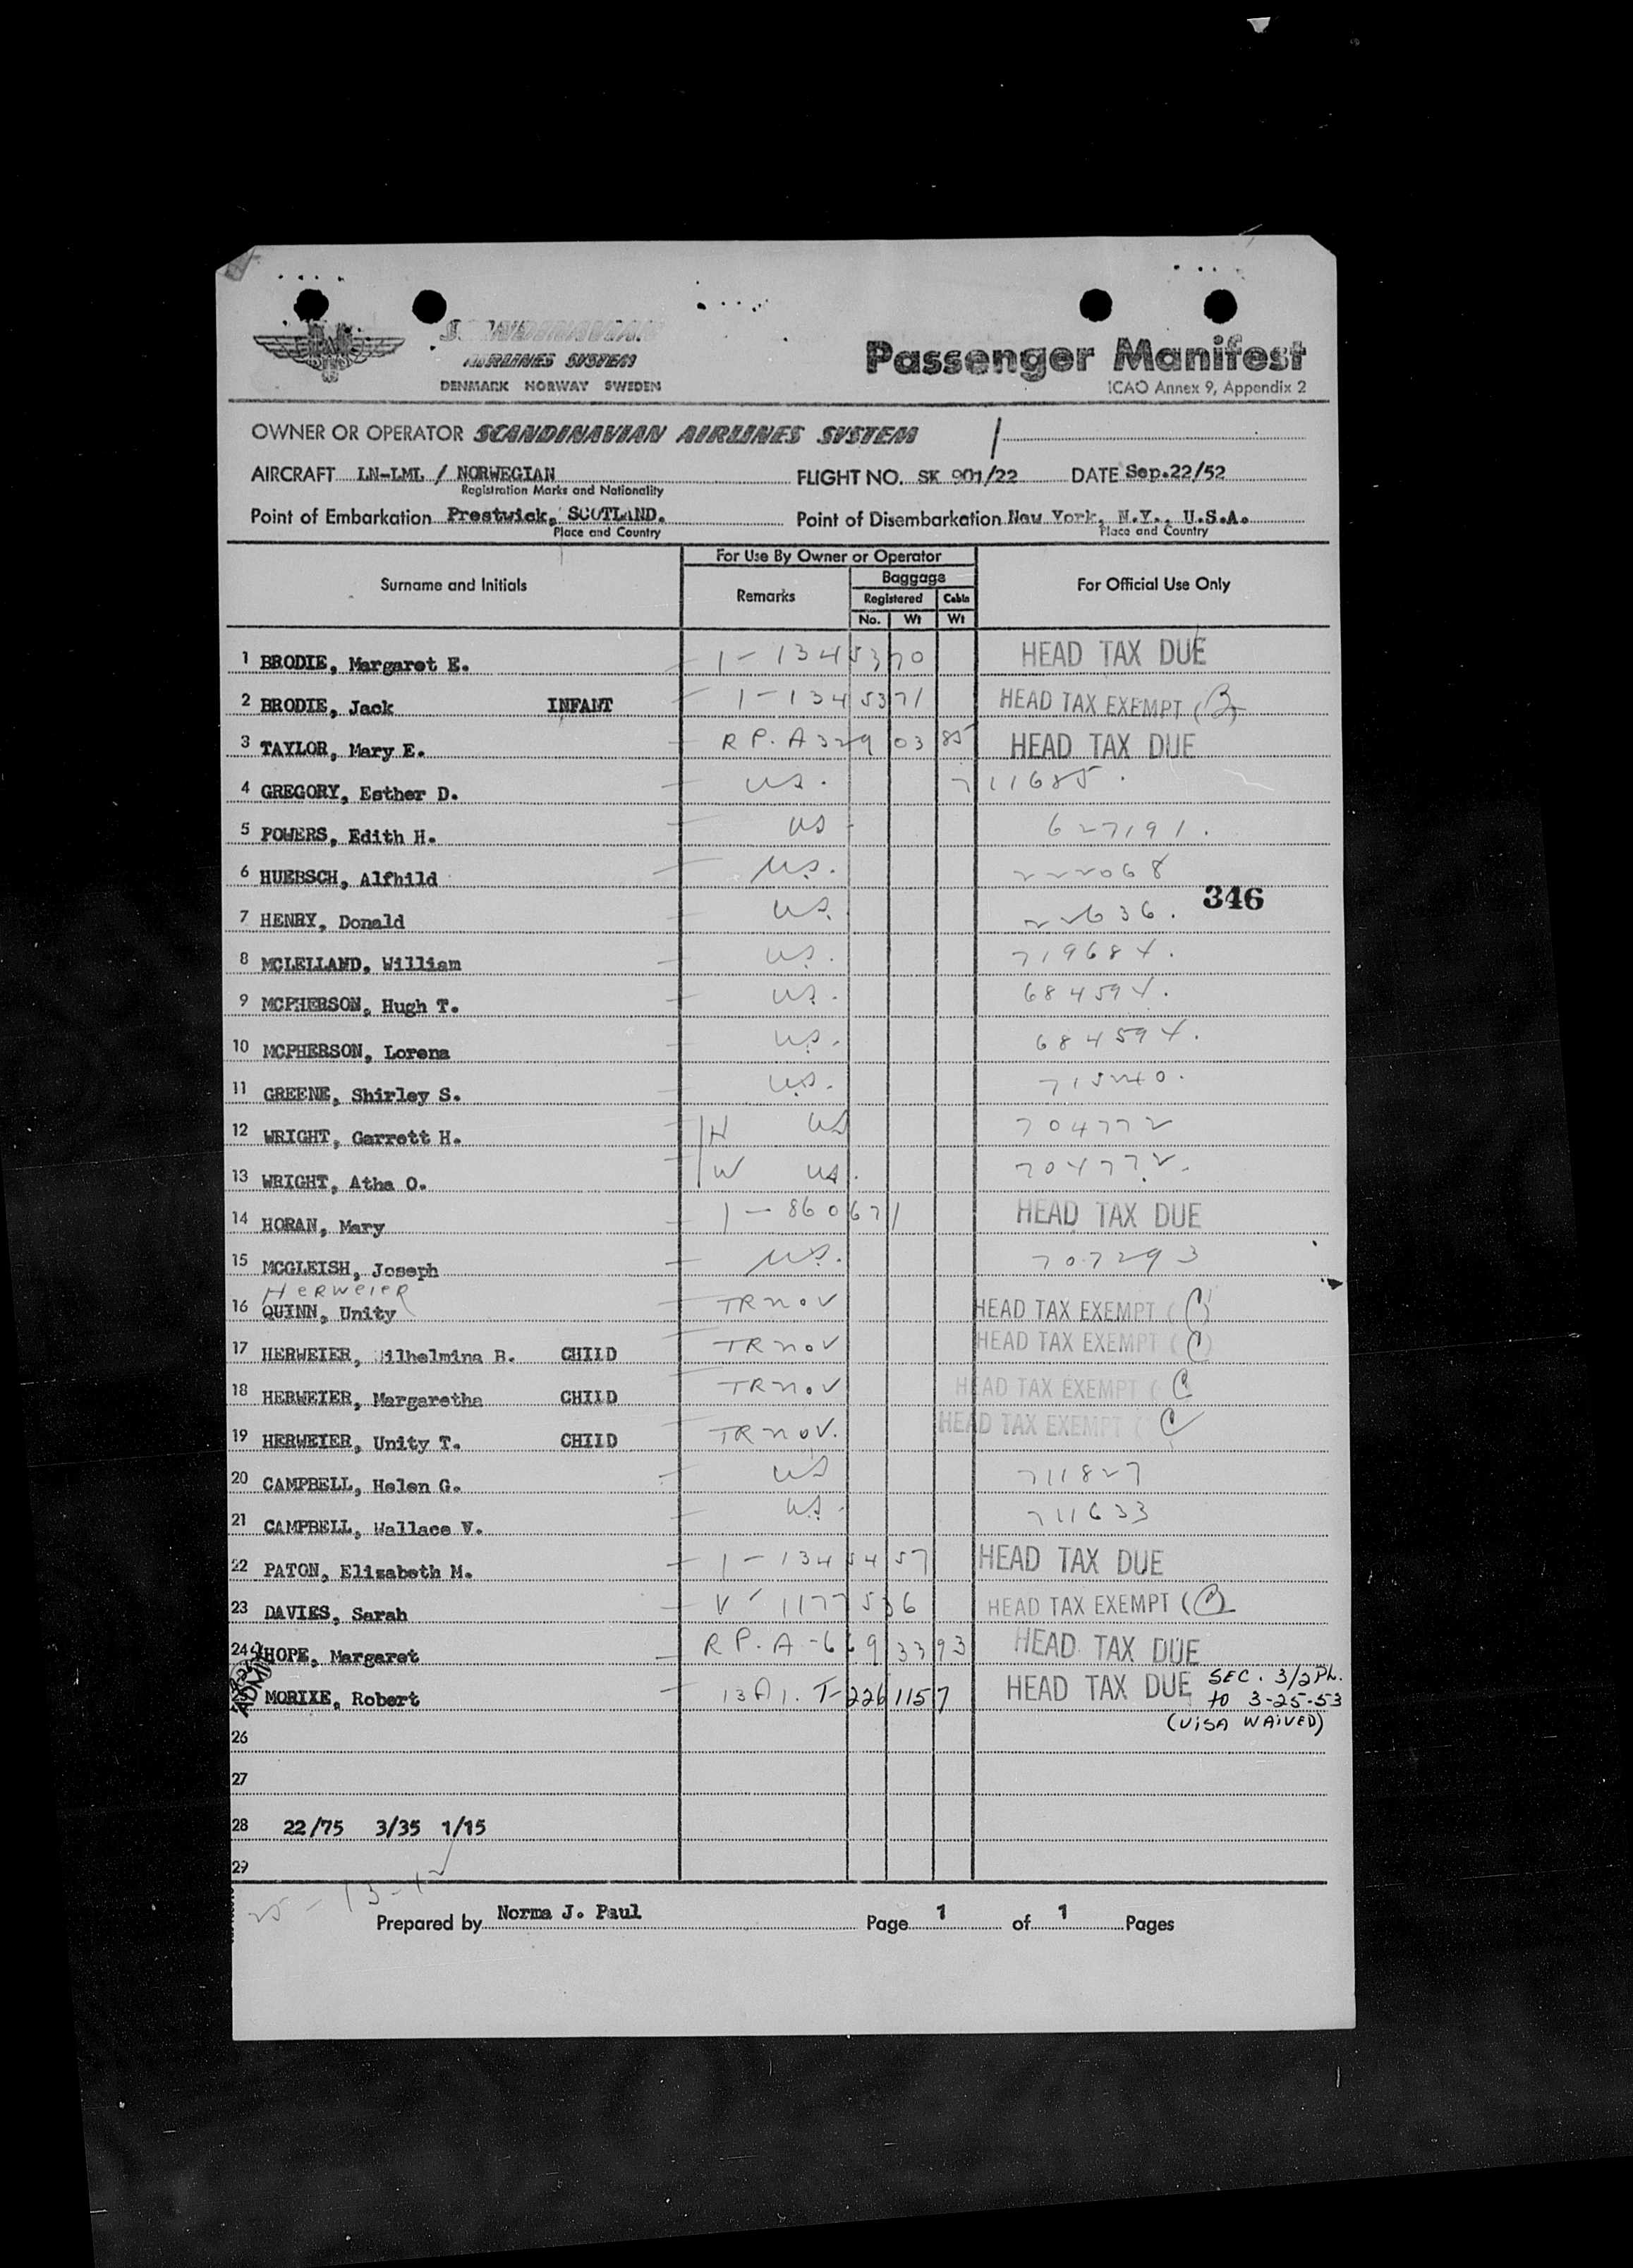 SCANDINAVIAN
AIRLINES SYSTEM
DENMARK NORWAY SWEDEN
Passenger Manifest
ICAO Annex 9, Appendix 2
OWNER OR OPERATOR SCANDINAVIAN AIRLINES SYSTEM
AIRCRAFT LN-LML / NORWEGIAN FLIGHT NO. SK 901/22 DATE Sep.22/52
Registration Marks and Nationality
Point of Embarkation Prestwick, SCOTLAND. Point of Disembarkation New York, N.Y., U.S.A.
Place and Country Place and Country
Surname and Initials For Use By Owner or Operator For Official Use Only
Remarks Baggage
Registered Cabin
No. Wt Wt
1 BRODIE, Margaret E. 1-1345370 HEAD TAX DUE
2 BRODIE, Jack INFANT 1-1345371 HEAD TAX EXEMPT (B)
3 TAYLOR, Mary E. R.P. A3290385 HEAD TAX DUE
4 GREGORY, Esther D. US. 711685.
5 POWERS, Edith H. US 627191.
6 HUEBSCH, Alfhild U.S. 222068
346
7 HENRY, Donald U.S. 22636.
8 MCLELLAND, William U.S. 719684.
9 MCPHERSON, Hugh T. U.S. 684594.
10 MCPHERSON, Lorena U.S. 684594.
11 GREENE, Shirley S. U.S. 715240.
12 WRIGHT, Garrett H. H US 704772
13 WRIGHT, Atha O. W US. 704772.
14 HORAN, Mary 1-860671 HEAD TAX DUE
15 MCGLEISH, Joseph U.S. 707293
Herweier
16 QUINN, Unity TR nov HEAD TAX EXEMPT (C)
17 HERWEIER, Wilhelmina B. CHILD TR nov HEAD TAX EXEMPT (C)
18 HERWEIER, Margaretha CHILD TR nov HEAD TAX EXEMPT (C
19 HERWEIER, Unity T. CHILD TR nov. HEAD TAX EXEMPT (C
20 CAMPBELL, Helen G. US 711827
21 CAMPBELL, Wallace V. U.S. 711633
22 PATON, Elizabeth M. 1-1345457 HEAD TAX DUE
23 DAVIES, Sarah V-1177536 HEAD TAX EXEMPT (C)
24 HOPE, Margaret R.P. A-6693393 HEAD TAX DUE
ADM MORIXE, Robert T-2261157 HEAD TAX DUE SEC. 3/2 PL.
to 3-25-53
(VISA WAIVED)
26
27
28 22/75 3/35 1/15
29
25-13-12
Prepared by Norma J. Paul Page 1 of 1 Pages